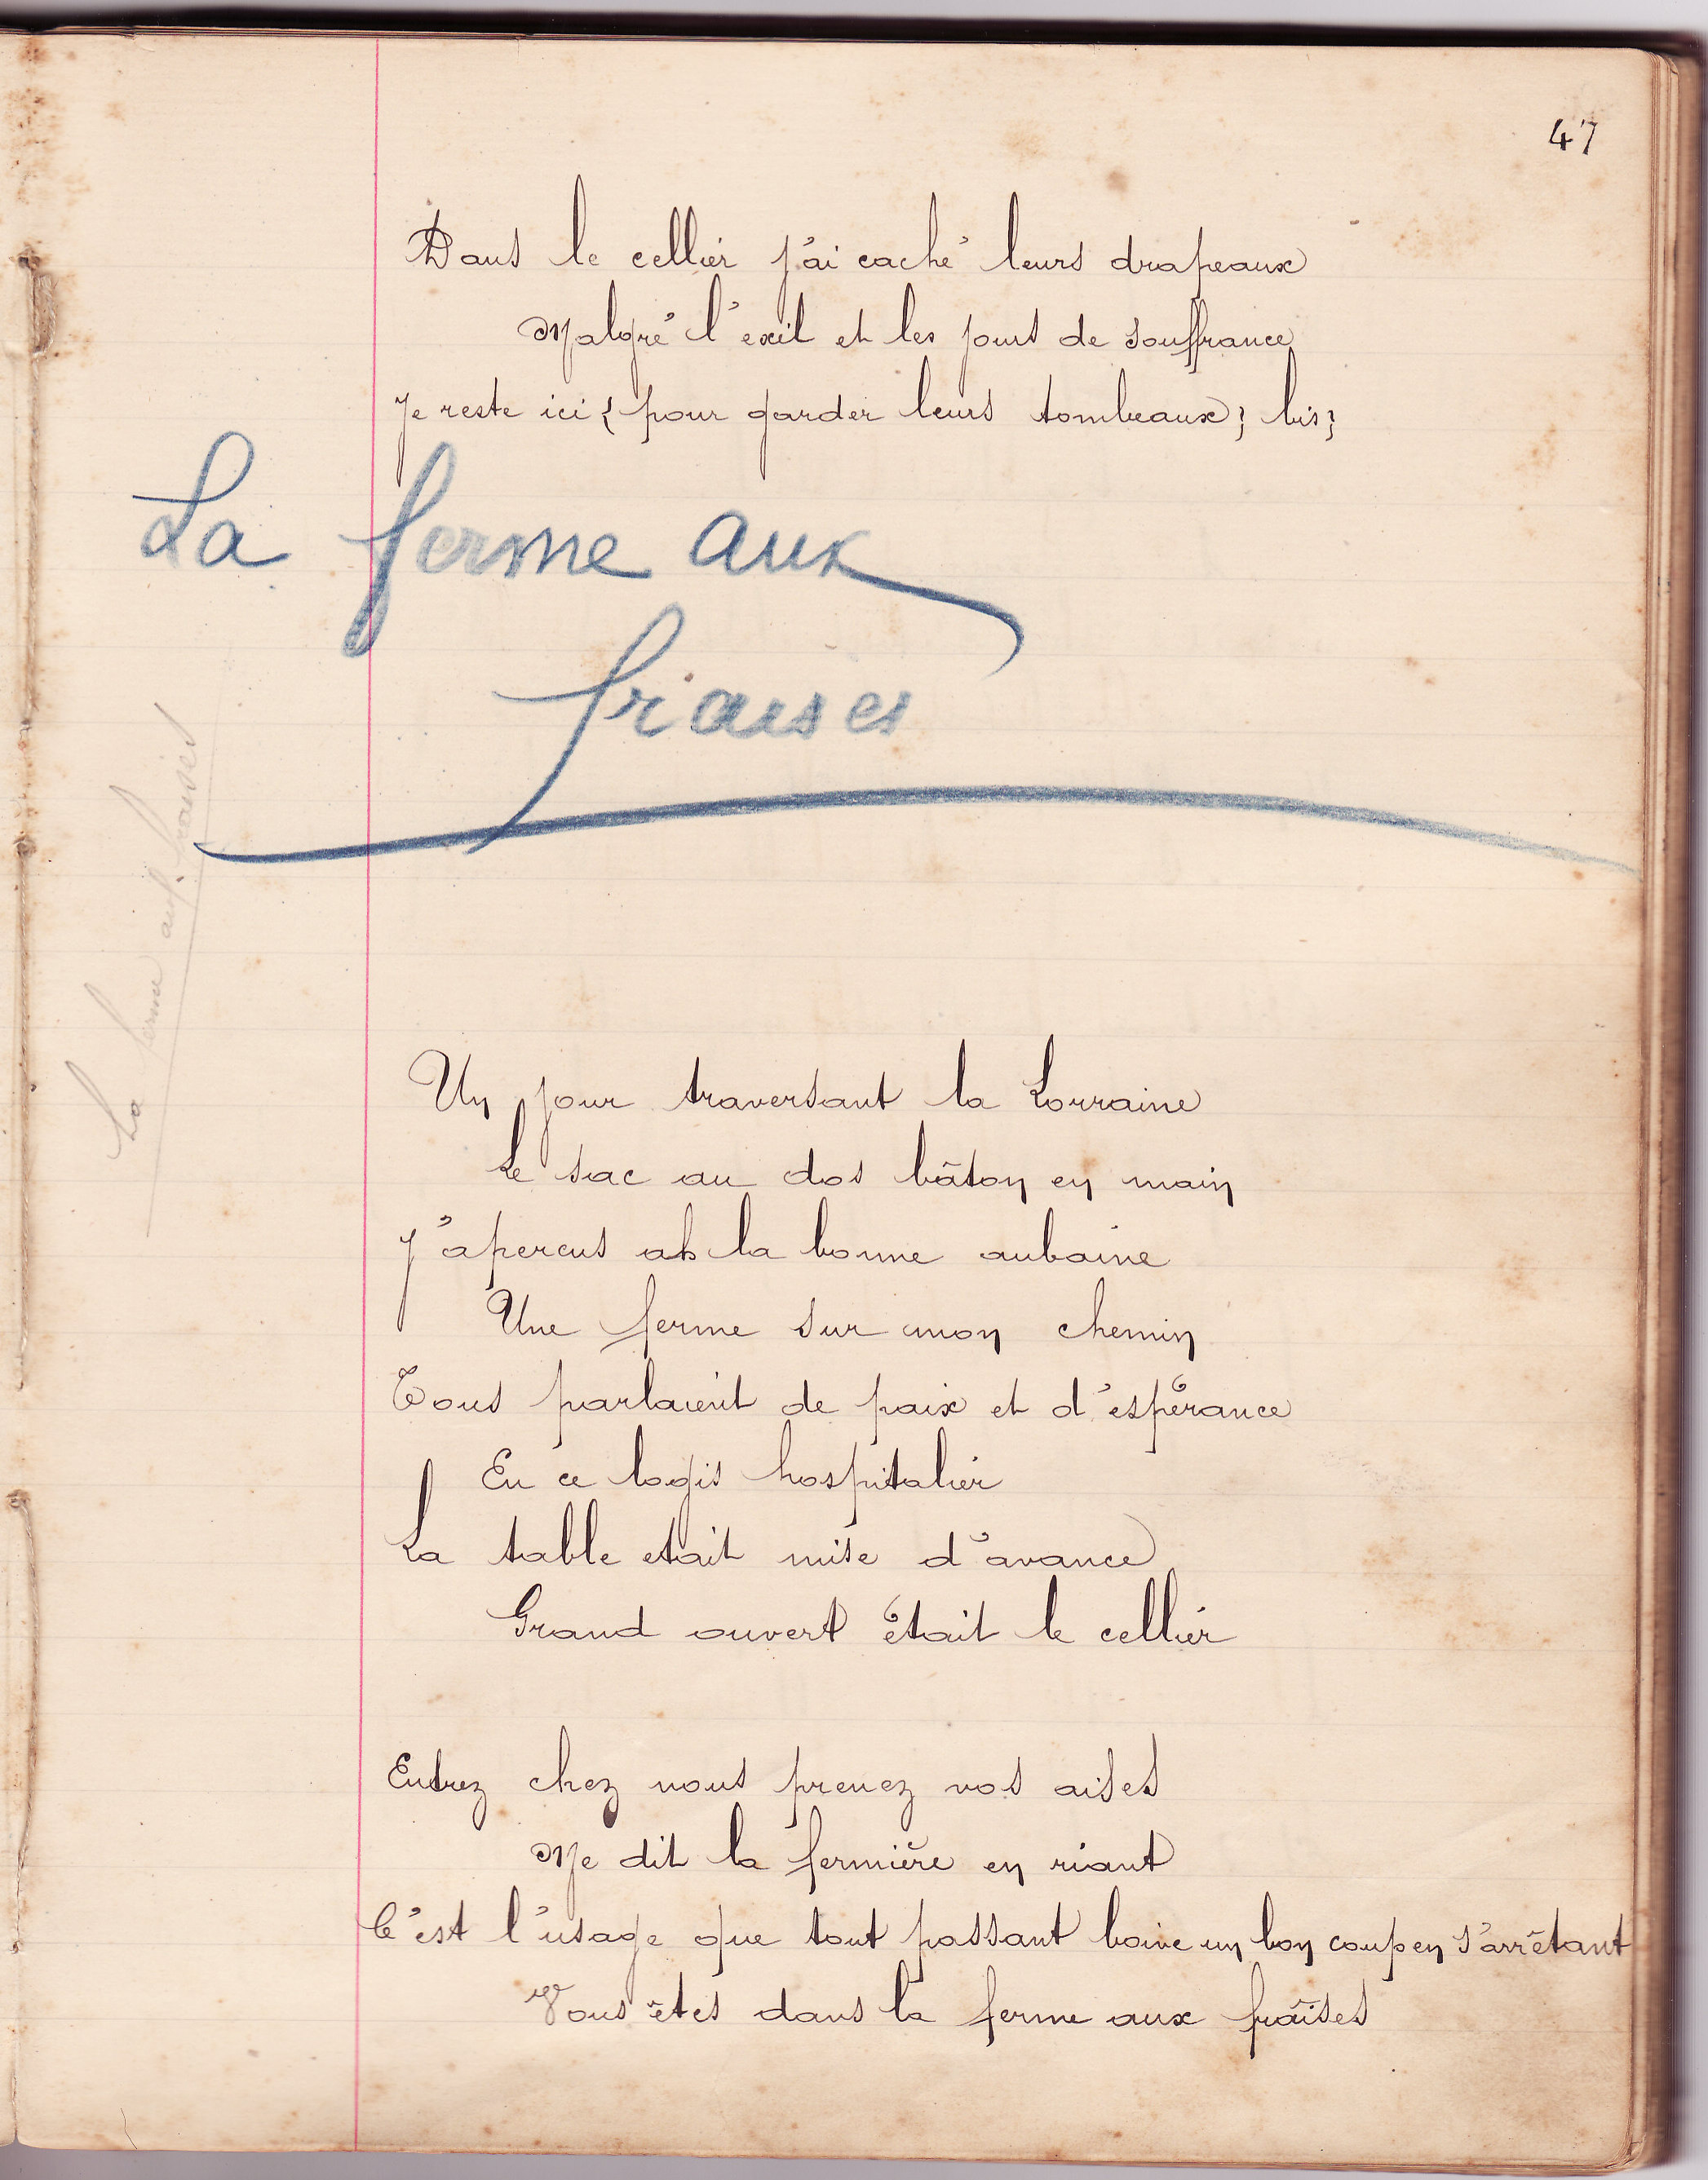 47
Dans le cellier j'ai caché leurs drapeaux
Malgré l'exil et les jours de souffrance
Je reste ici { pour garder leurs tombeaux } bis }
La ferme aux
fraises
La ferme aux fraises
Un jour traversant la Lorraine
Le sac au dos bâton en main
J'apercus ah la bonne aubaine
Une ferme sur mon chemin
Tous parlaient de paix et d'espérance
En ce logis hospitalier
La table etait mise d'avance
Grand ouvert était le cellier
Entrez chez nous prenez vos aises
Me dit la fermière en riant
C'est l'usage que tout passant boive un bon coup en s'arrêtant
Vous êtes dans la ferme aux fraises